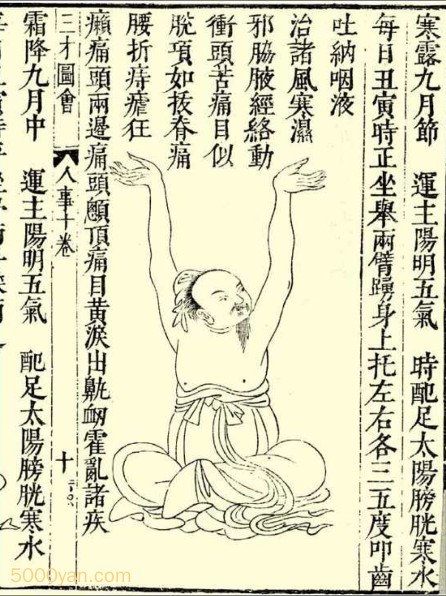 寒露九月節　運主陽明五氣　時配足太陽膀胱寒水
每日丑寅時正坐舉兩臂踴身上托左右各三五度叩齒
吐納咽液
治諸風寒濕
邪脇腋經絡動
衝頭苦痛目似
脫項如拔脊痛
腰折痔瘧狂
癲痛頭兩邊痛頭顖頂痛目黃淚出鼽衄霍亂諸疾
三才圖會
人事十卷
十
霜降九月中　運主陽明五氣　配足太陽膀胱寒水
5000yan.com